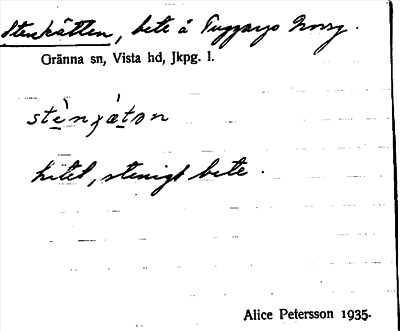 Stenkätten, bete å Tuggarps Norrg.
Gränna sn, Vista hd, Jkpg. l.
litet, stenigt bete.
Alice Petersson 1935.